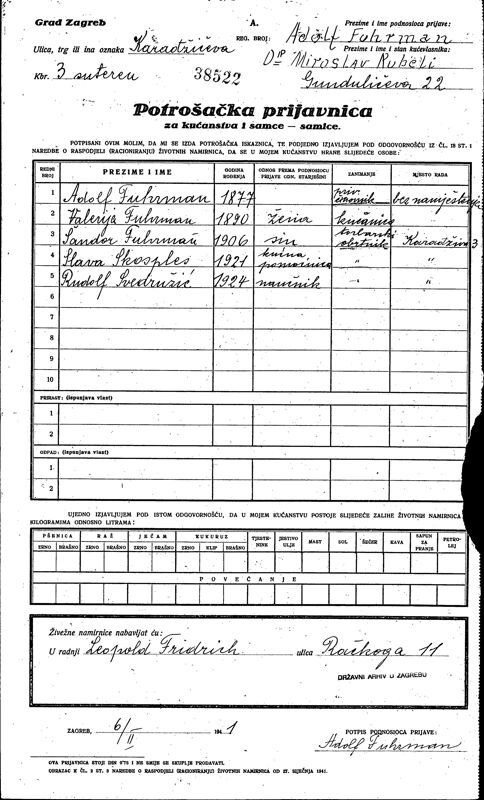 Grad Zagreb
A.
Prezime i ime podnosioca prijave:
REG. BROJ: Adolf Fuhrman
Ulica, trg ili ina oznaka Karadžićeva
Prezime i ime i stan kućevlasnika:
Dr Miroslav Kubeli
Kbr. 3 suteren
38522
Gundulićeva 22
Potrošačka prijavnica
za kućanstva i samce — samice.
POTPISANI OVIM MOLIM, DA MI SE IZDA POTROŠAČKA ISKAZNICA, TE PODJEDNO IZJAVLJUJEM POD ODGOVORNOŠĆU IZ ČL. 18 ST. 1
NAREDBE O RASPODJELI (RACIONIRANJU) ŽIVOTNIH NAMIRNICA, DA SE U MOJEM KUĆANSTVU HRANE SLIJEDEĆE OSOBE:
REDNI BROJ PREZIME I IME GODINA ROĐENJA ODNOS PREMA PODNOSIOCU PRIJAVE ODN. STARJEŠINI ZANIMANJE MJESTO RADA
1 Adolf Fuhrman 1877 priv. bez namještenja
2 Valerija Fuhrman 1890 žena kućanica
3 Šandor Fuhrman 1906 sin obrtnik Karadžićeva 3
4 Slava 1921 kućna pomoćnica " "
5 Rudolf Svedružić 1924 naučnik " "
6
7
8
9
10
PRIRAST: (ispunjava vlast)
1
2
OTPAD: (ispunjava vlast)
1
2
UJEDNO IZJAVLJUJEM POD ISTOM ODGOVORNOŠĆU, DA U MOJEM KUĆANSTVU POSTOJE SLIJEDEĆE ZALIHE ŽIVOTNIH NAMIRNICA
KILOGRAMIMA ODNOSNO LITRAMA:
PŠENICA RAŽ JEČAM KUKURUZ TJESTENINE JESTIVO ULJE MAST SOL ŠEĆER KAVA SAPUN ZA PRANJE PETROLEJ
ZRNO BRAŠNO ZRNO BRAŠNO ZRNO BRAŠNO ZRNO KLIP BRAŠNO
POVEĆANJE
Živežne namirnice nabavljat ću:
U radnji Leopold Fridrich ulica Račkoga 11
DRŽAVNI ARHIV U ZAGREBU
ZAGREB, 6/II 1941
POTPIS PODNOSIOCA PRIJAVE:
Adolf Fuhrman
OVA PRIJAVNICA STOJI DIN 0'75 I NE SMIJE SE SKUPLJE PRODAVATI.
OBRAZAC K ČL. 2 ST. 3 NAREDBE O RASPODJELI (RACIONIRANJU) ŽIVOTNIH NAMIRNICA OD 27. SIJEČNJA 1941.